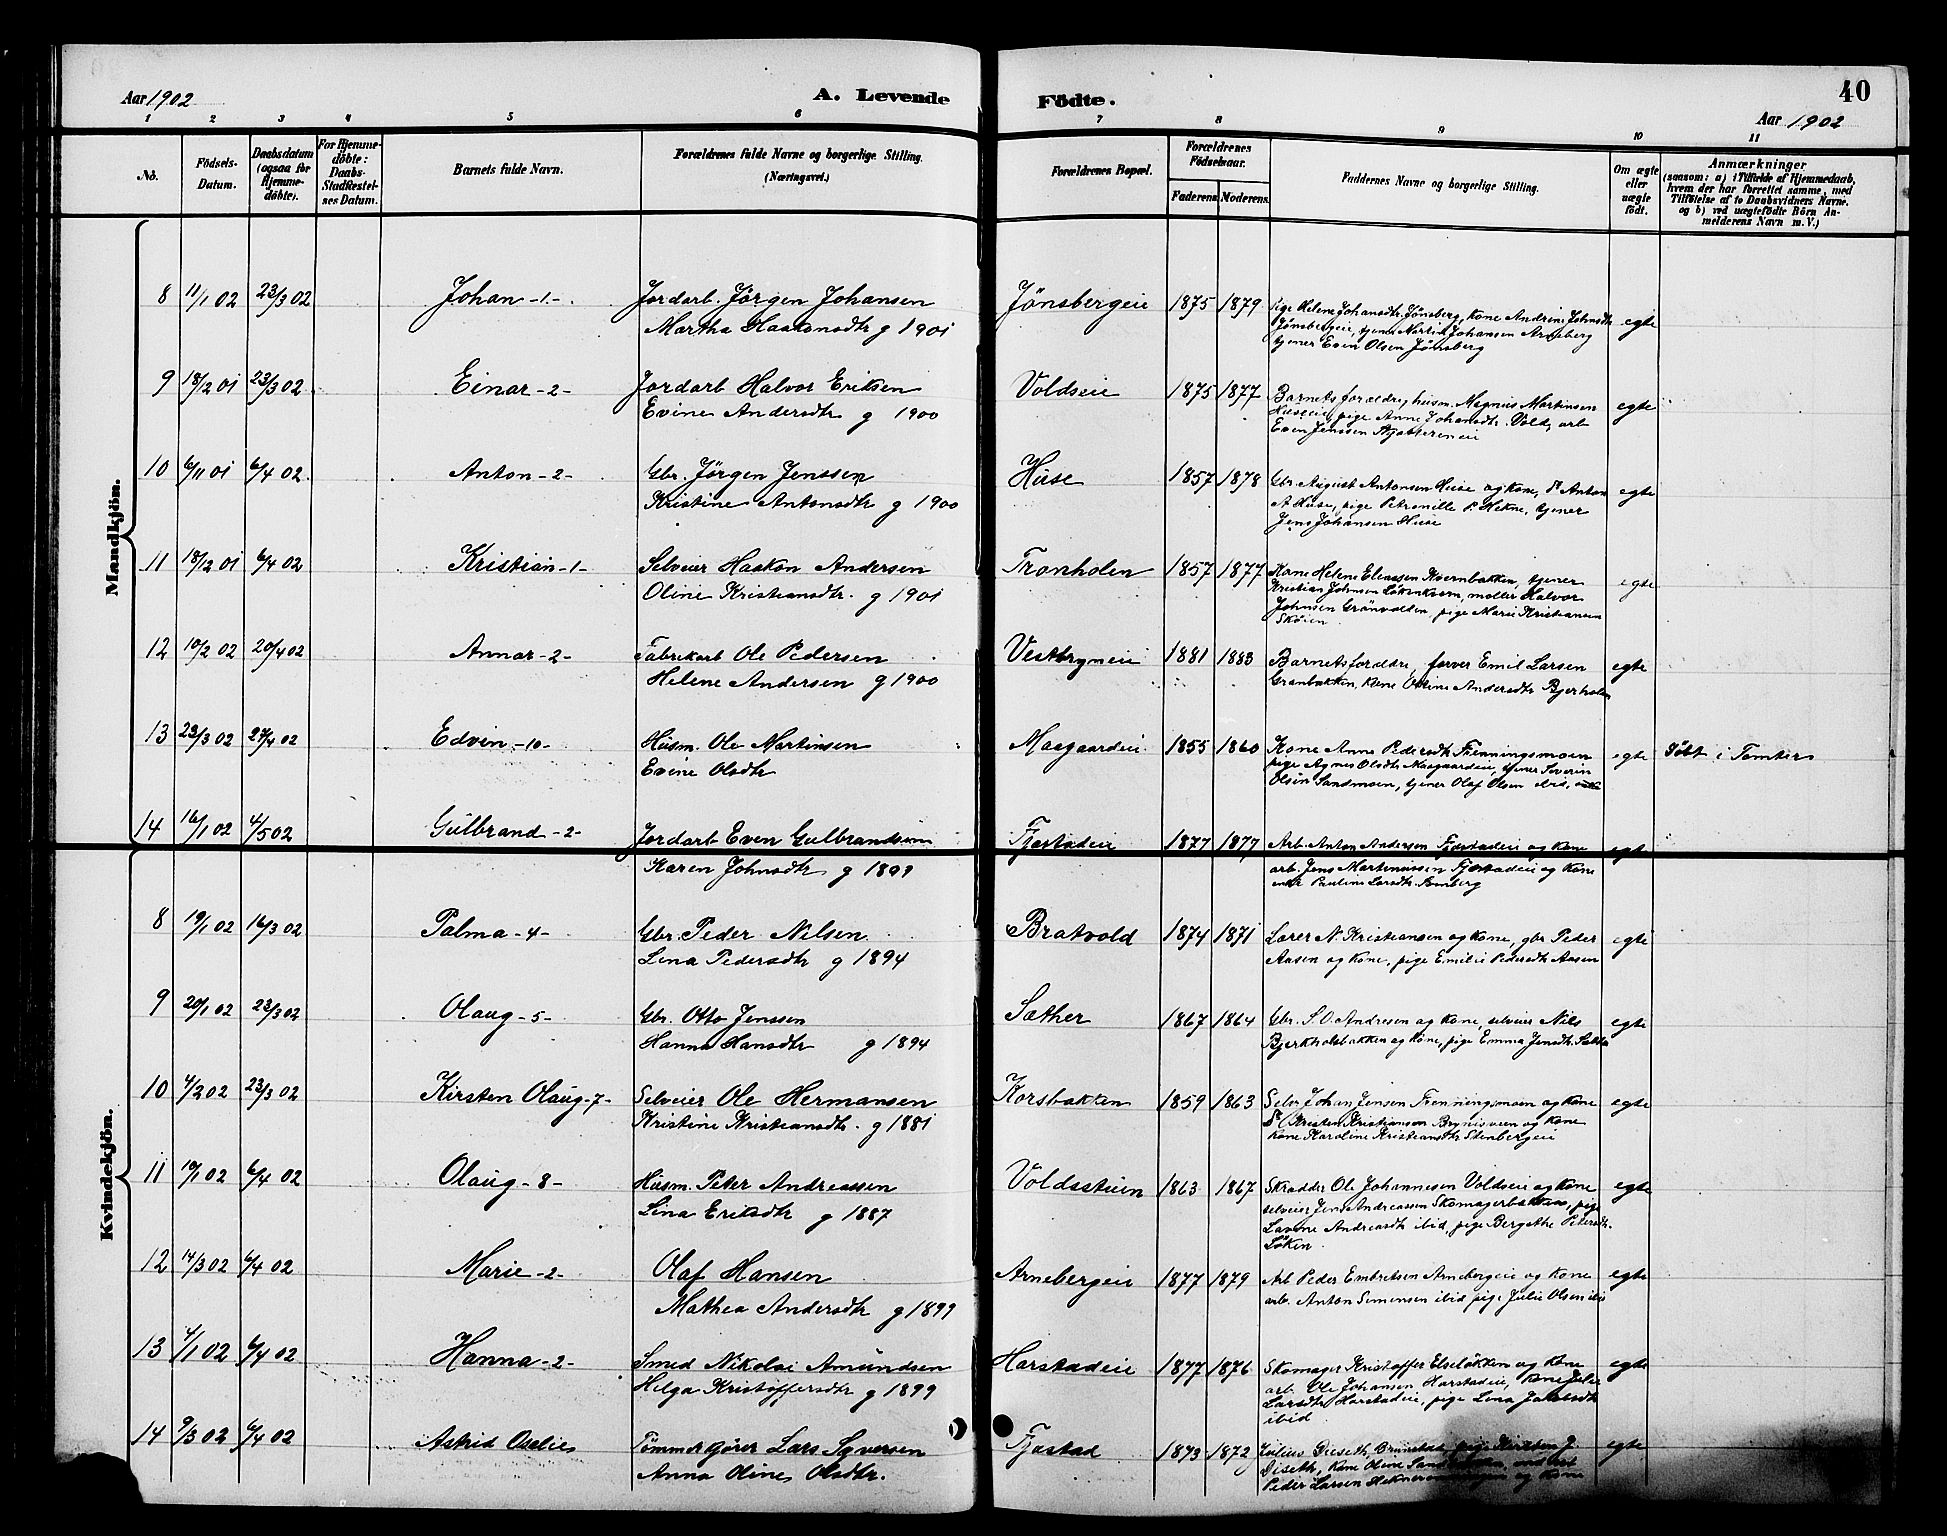 Aar 1902
A. Levende Födte.
40
Aar 1902
1 2 3 4 5 6 7 8 9 10 11
No.
Födsels-Datum.
Daabsdatum (ogsaa for Hjemmedöbte).
For Hjemmedöbte: Daabs-Stadfestelses Datum.
Barnets fulde Navn.
Forældrenes fulde Navne og borgerlige Stilling. (Næringsvei.)
Forældrenes Bopæl.
Forældrenes Födselsaar.
Faderens Moderens
Faddernes Navne og borgerlige Stilling.
Om ægte eller uægte födt.
Anmærkninger
(saasom: a) i Tilfælde af Hjemmedaab,
hvem der har forrettet samme, med
Tilföielse af to Daabsvidners Navne.
og b) ved uægtefödte Börn An-
melderens Navn m. V.)
Mandkjön.
8 11/1 02 23/3 02 Johan -1- Jordarb. Jørgen Johansen Jønsbergeie 1875 1879 Pige Helene Johansdtr. Jønsberg, kone Andrine Johnsdtr egte
Martha Haakonsdtr g 1901 Jønsbergeie, tjener Martin Johansen Arneberg
tjener Even Olsen Jønsberg
9 18/12 01 23/3 02 Einar -2- Jordarb Halvor Eriksen Voldseie 1875 1877 Barnets forældre, husm. Magnus Martinsen egte
Evine Andersdtr g 1900 Huseeie, pige Anne Johansdtr. Vold, arb
Even Jenssen
10 6/11 01 6/4 02 Anton -2- Gbr. Jørgen Jenssen Huse 1857 1878 Gbr. August Antonsen Huse og kone, do Anton egte
Kristine Antonsdtr g 1900 A Huse, pige Petronille P. Hekne, tjener
Jens Johansen Huse
11 18/12 01 6/4 02 Kristian -1- Selveier Haakon Andersen Tronholen 1857 1877 Kone Helene Eliassen Kvernbakken, tjener egte
Oline Kristiansdtr. g 1901 Kristian Johnsen Løkenkvern, møller Halvor
Johnsen Grønvolden, pige Marie Kristiansen
Skøien
12 10/2 02 20/4 02 Annar -2- Fabrikarb Ole Pedersen Vestbyneie 1881 1883 Barnets forældre, farver Emil Larsen egte
Helene Andersen g 1900 Granbakken, kone Oline Andersdtr Bjerholen
13 23/3 02 27/4 02 Edvin -10- Husm. Ole Martinsen Maagaardeie 1855 1860 Kone Anne Pedersdtr Frenningsmoen egte Döbt i Tomter
Evine Olsdtr pige Agnes Olsdtr Maagaardeie, tjener Severin
Olsen Sandmoen, tjener Olaf Olsen ibid,
14 16/1 02 4/5 02 Gulbrand -2- Jordarb Even Gulbrandsen Fjæstadeie 1877 1877 Arb. Anton Andersen Fjæstadeie og kone egte
Karen Johnsdtr g 1899 arb. Jens Martiniussen Fjæstadeie og kone
enke Pauline Larsdtr.
Kvindekjön.
8 19/1 02 16/3 02 Palma -4- Gbr. Peder Nilsen Bratvold 1874 1871 Lærer N. Kristiansen og kone, gbr Peder egte
Lina Pedersdtr g 1894 Aasen og kone, pige Emilie Pedersdtr Aasen
9 20/1 02 23/3 02 Olaug -5- Gbr. Otto Jenssen Sæther 1867 1864 Gbr. S. O. Andresen og kone, selveier Nils egte
Hanna Hansdtr g 1894 Bjerkholsbakken og kone, pige Emma Jensdtr.
10 4/2 02 23/3 02 Kirsten Olaug -7- Selveier Ole Hermansen Korsbakken 1859 1863 Selv. Johan Jensen Frenningsmoen og kone egte
Kristine Kristiansdtr. g 1881 do Kristen Kristiansen og kone
kone Karoline Kristiansdtr Stenbergeie
11 19/1 02 6/4 02 Olaug -8- Husm. Peter Andreassen Voldsstuen 1863 1867 Skrædder Ole Johannesen Voldseie og kone egte
Lina Eriksdtr g 1887 selveier Jens Andreassen Skomagerbakken, pige
Andreasdtr ibid, pige Bergethe Petersdtr.
Løken.
12 14/3 02 6/4 02 Marie -2- Olaf Hansen Arnebergeie 1877 1879 Arb Peder Embretsen Arnebergeie og kone egte
Mathea Andersdtr g 1899 arb. Anton Simensen ibid pige Julie Olsen ibid
13 4/1 02 6/4 02 Hanna -2- Smed Nikolai Amundsen Harstadeie 1877 1876 Skomager Kristoffer Elseløkken og kone egte
Helga Kristoffersdtr g 1899 arb. Ole Johansen Harstadeie, kone Julie
Larsdtr Harstadeie, pige Lina
ibid
14 9/3 02 6/4 02 Astrid Oselie Tömmerkjører Lars Syversen Fjæstad 1873 1872 Julius Diseth, Brunstad, pige egte
Anna Oline Olsdtr. Diseth, kone Oline
Peder Larsen og kone